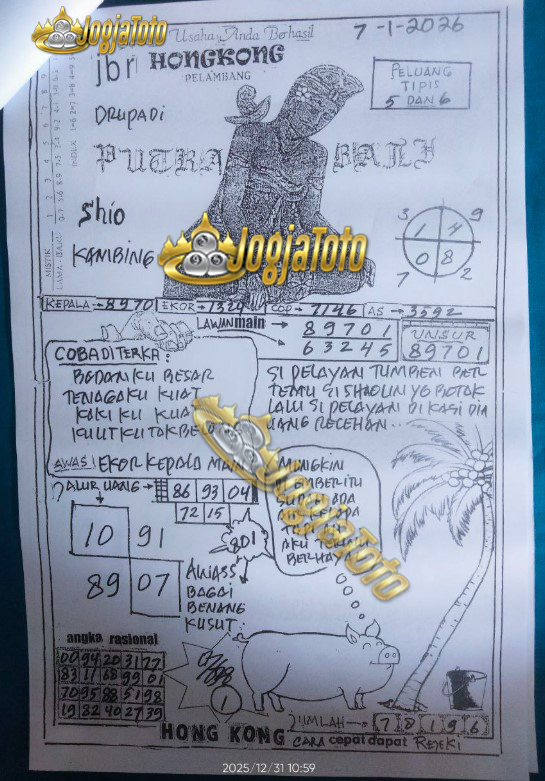 JogjaToto
Usaha Anda Berhasil
7-1-2026
jbr HONGKONG
PELAMBANG
PELUANG
TIPIS
5 DAN 6
DRUPADI
PUTRA BALI
Shio
KAMBING
3 9
1 4
0 8
7 2
JogjaToto
MISTIK
LAMA - BARU
INDEX
KEPALA → 8970 EKOR → 1324 COP → 7146 AS → 3592
LAWAN main → 89701
63245
UNSUR
89701
COBA DITERKA :
BADANKU BESAR
TENAGAKU KUAT
KAKI KU KUA
KULITKU TAK BE
SI PELAYAN TUMBEN BER
TEMU SI SHAOLIN YG BOTAK
LALU SI PELAYAN DI KASI DIA
UANG RECEHAN..
AWAS! EKOR KEPALA MAIN
JALUR UANG →
86 93 04
72 15
MUNGKIN
EMBER ITU
AKU
BERHAYA
JogjaToto
801
10 91
89 07
AWASS
BAGAI
BENANG
KUSUT.
angka rasional
00 94 20 31 77
83 11 68 99 01
70 95 88 51 98
19 82 40 27 39
1
JUMLAH → 7 8 1 9 6
HONG KONG CARA cepat dapat REJEKI
2025/12/31 10:59